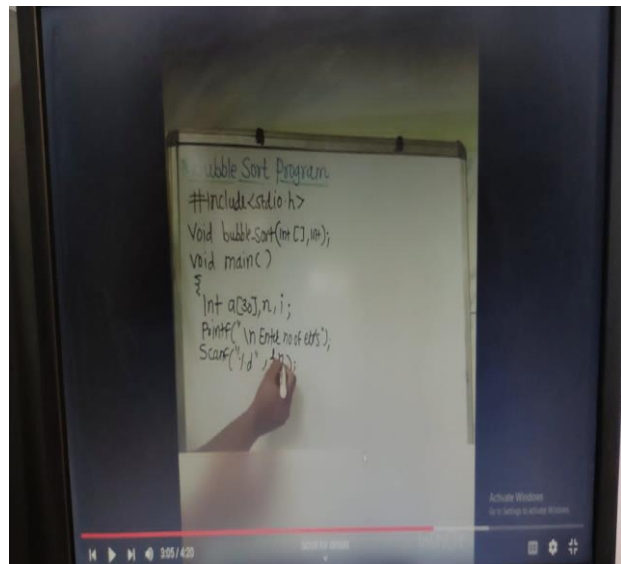 Bubble Sort Program
#include<stdio.h>
Void bubble_sort(int [],int);
Void main()
{
Int a[30],n,i;
Printf("\n Enter no of elts");
Scanf("%d", &n);
Activate Windows
Go to Settings to activate Windows.
3:05 / 4:20